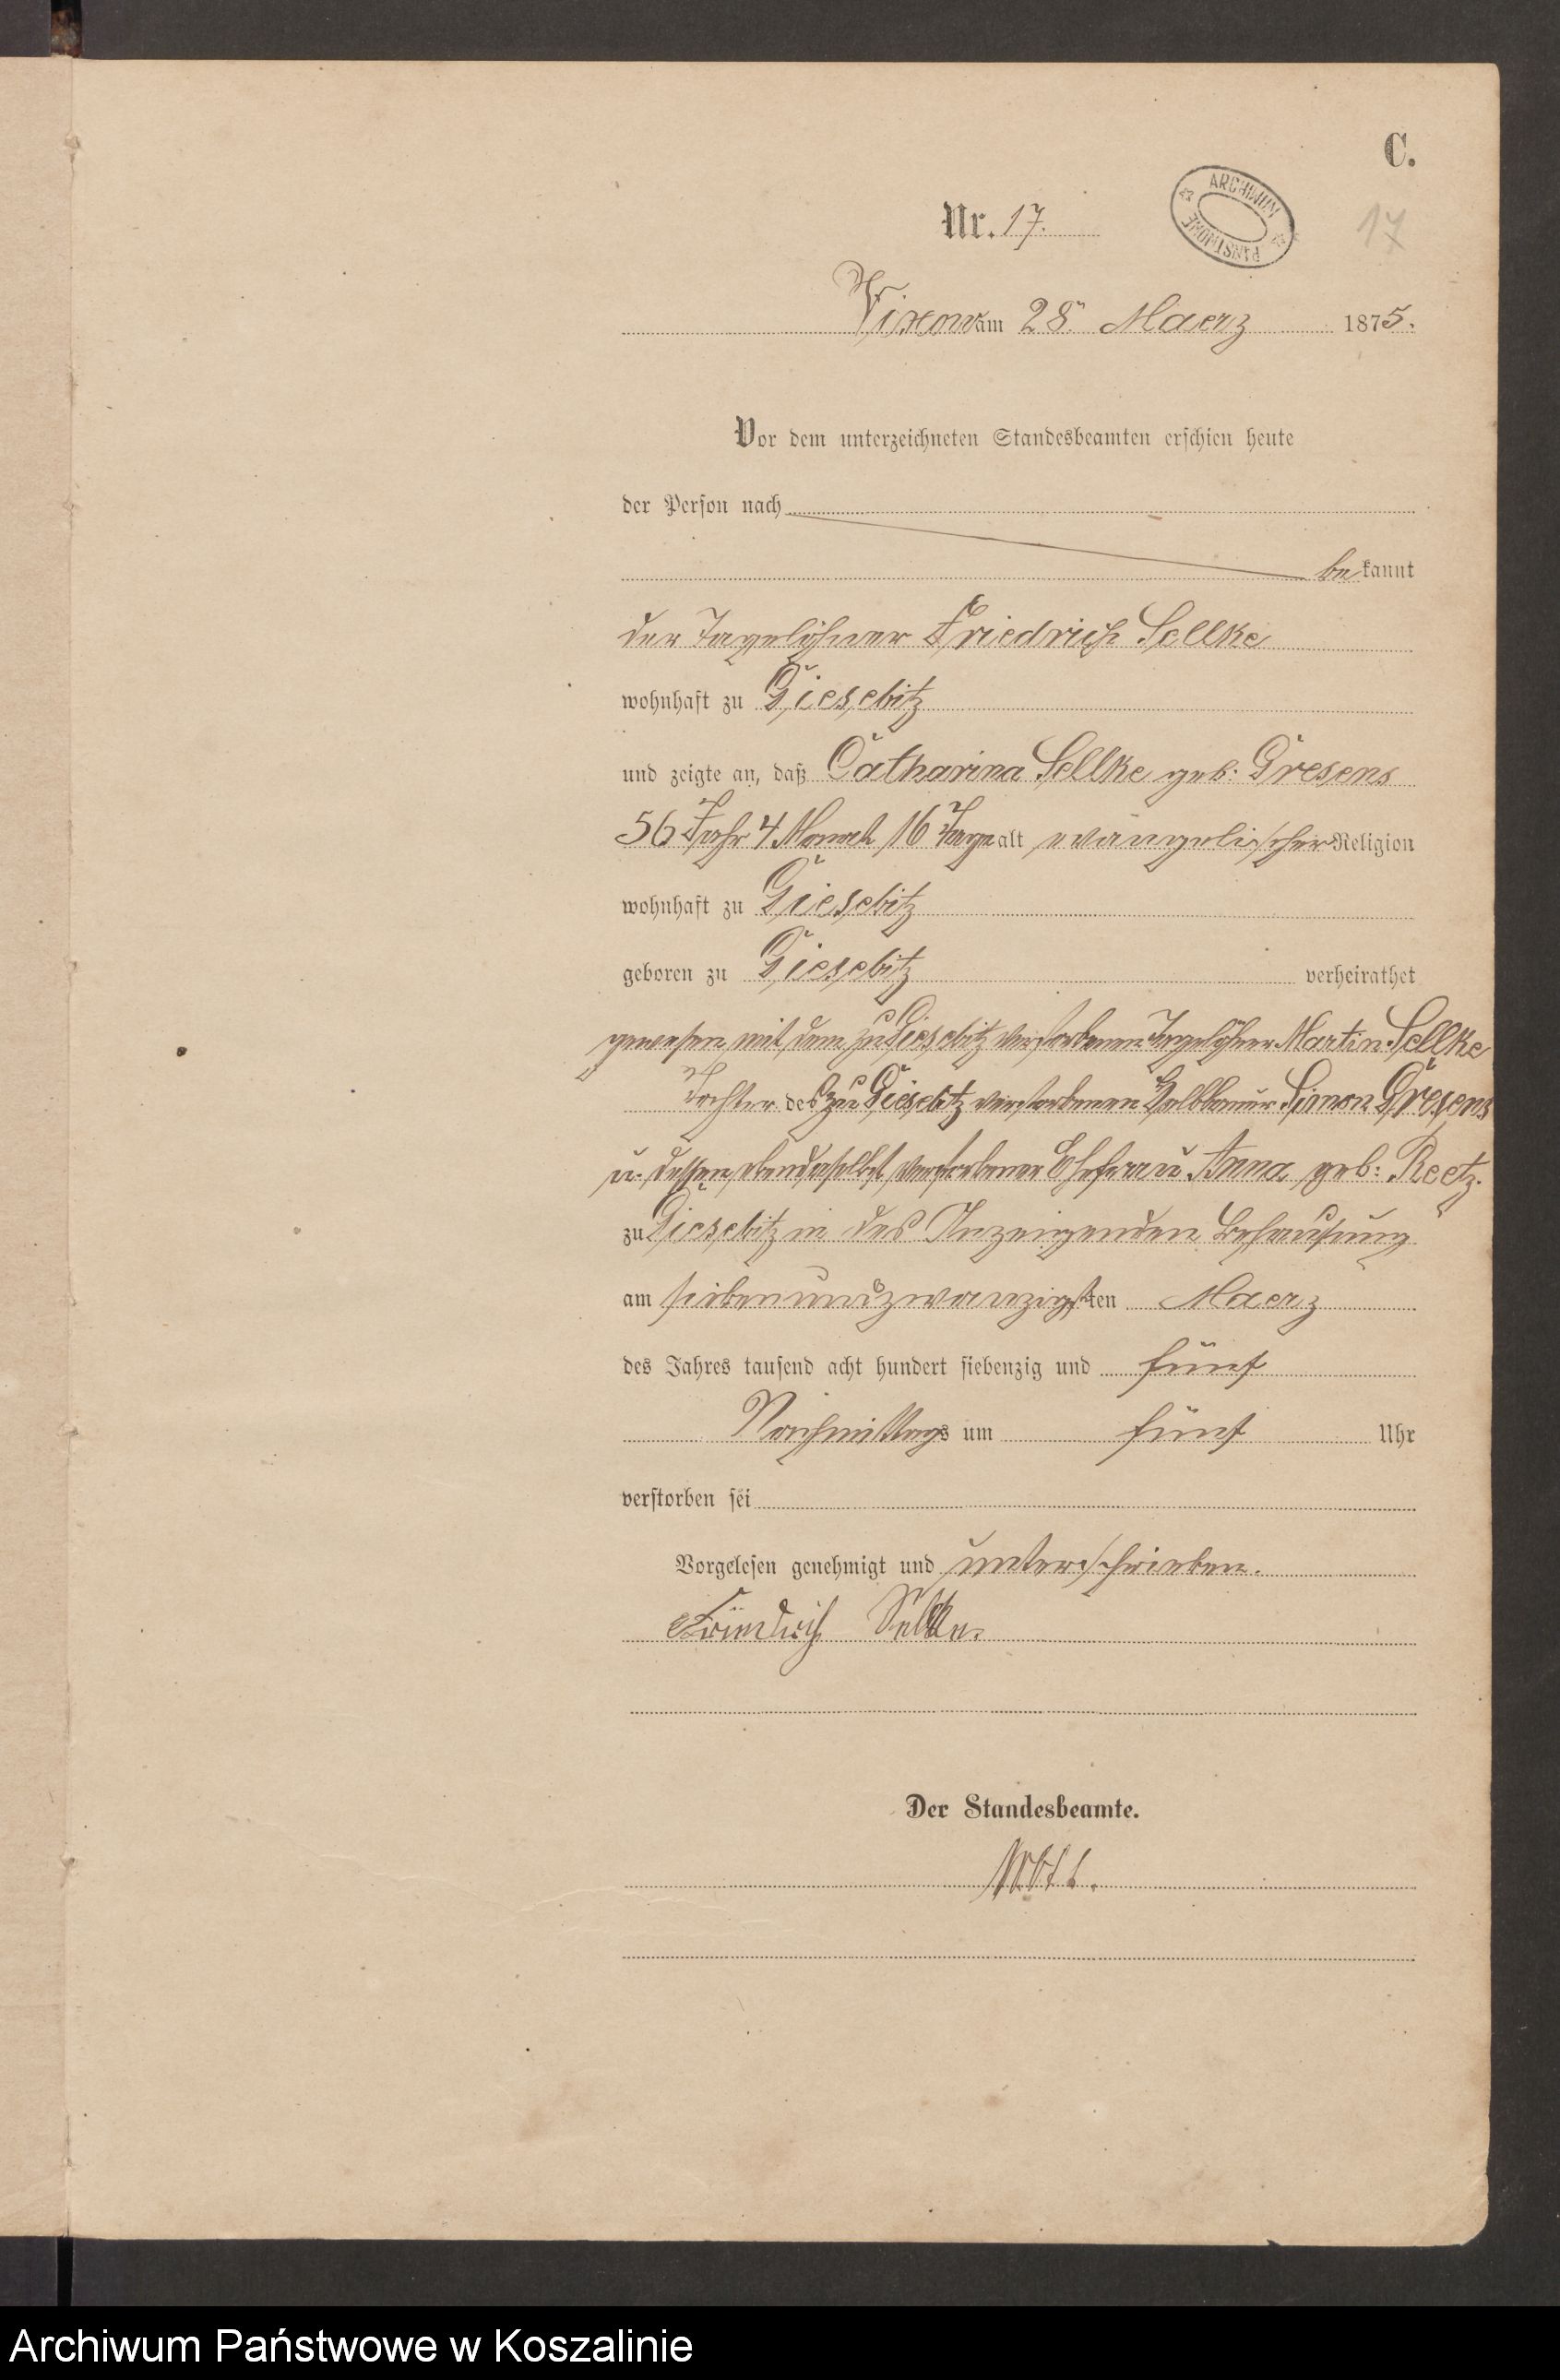 C.
ARCHIWUM PAŃSTWOWE
Nr. 17.
17
Vixow am 28. Maerz 1875.
Vor dem unterzeichneten Standesbeamten erschien heute
der Person nach
bekannt
der Tagelöhner Friedrich Sellke
wohnhaft zu Giesebitz
und zeigte an, daß Catharina Sellke geb: Gresens
56 Jahr 4 Monat 16 Tage alt evangelischer Religion
wohnhaft zu Giesebitz
geboren zu Giesebitz verheirathet
gewesen mit dem zu Giesebitz verstorbenen Tagelöhner Martin Sellke
Tochter des zu Giesebitz verstorbenen Halbbauer Simon Gresens
u. dessen ebendaselbst verstorbener Ehefrau Anna geb: Reetz.
zu Giesebitz in des Anzeigenden Behausung
am siebenundzwanzigsten Maerz
des Jahres tausend acht hundert siebenzig und fünf
Nachmittags um fünf Uhr
verstorben sei
Vorgelesen genehmigt und unterschrieben.
Friedrich Sellke.
Der Standesbeamte.
Archiwum Państwowe w Koszalinie